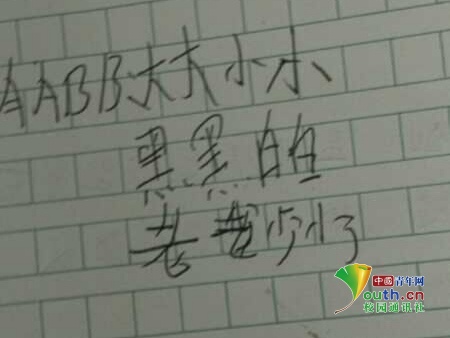 AABB:大大小小
黑黑白白
老老少少
中国青年网
youth.cn
校园通讯社